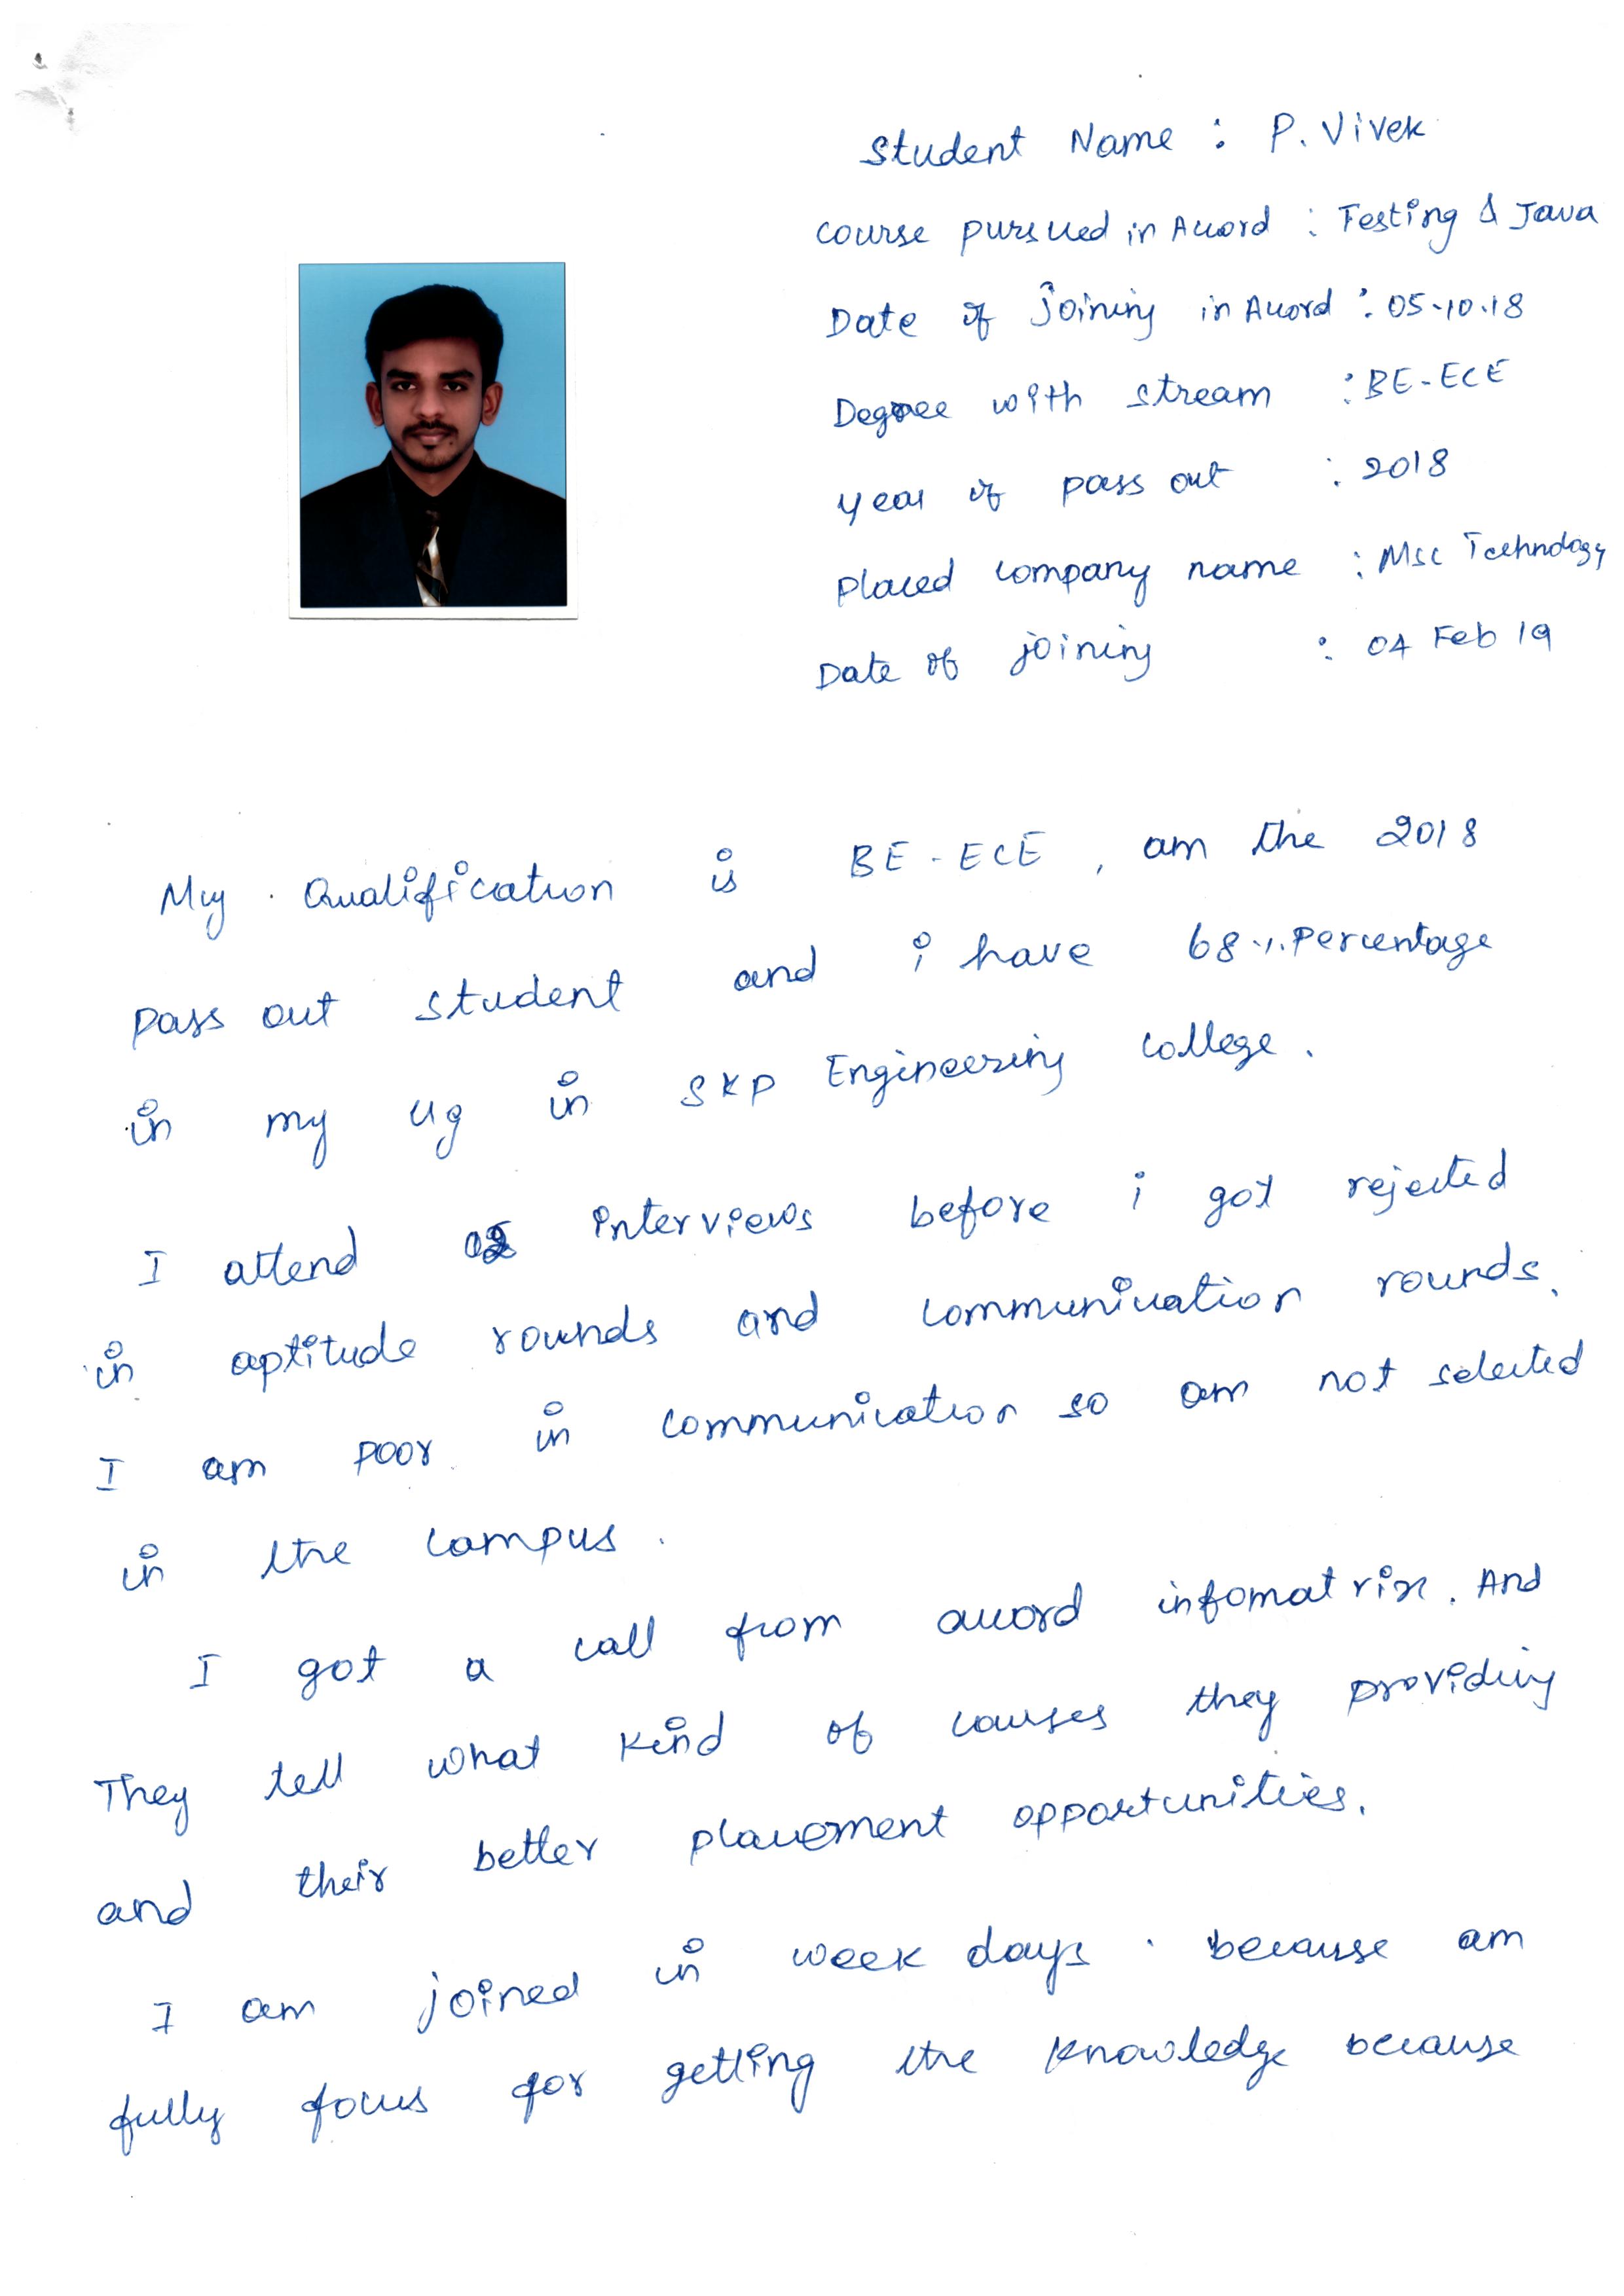 Student Name : P. Vivek
Course pursued in Accord : Testing & Java
Date of joining in Accord : 05.10.18
Degree with stream : BE-ECE
year of pass out : 2018
Placed company name : Msc Technology
Date of joining : 04 Feb 19
My Qualification is BE-ECE, am the 2018
pass out student and i have 68 %. Percentage
in my ug in SKP Engineering college.
I attend interviews before i got rejected
in aptitude rounds and communication rounds.
I am poor in communication so am not selected
in the campus.
I got a call from accord infomatrix. And
They tell what kind of courses they providing
and their better placement opportunities.
I am joined in week days. because am
fully focus for getting the knowledge because